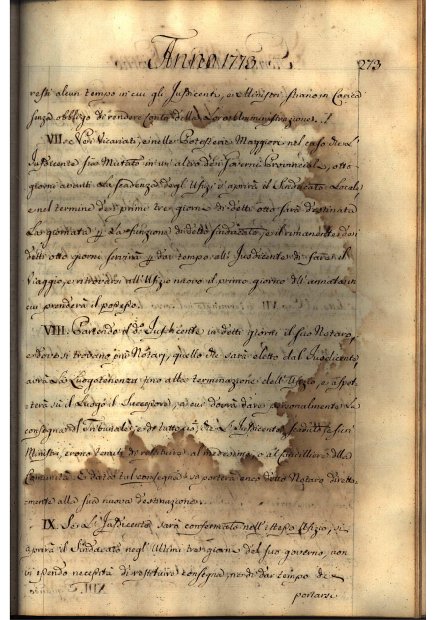 Anno 1773
273
resti alcun tempo in cui gli Jusdicenti, e Ministri stiano in Carica
senza obbligo di rendere conto della loro amministrazione.
VII. Nei Vicariati, e nelle Potesterie Maggiori nel caso che il
Jusdicente sia Mutato in un'altro dei Governi Provinciali, otto
giorni avanti la scadenza degl'Ufizi s'aprirà il Sindacato Locale,
e nel termine dei primi tre giorni di detti otto sarà destinata
la giornata p la funzione di detto sindacato, e il rimanente dei
detti otto giorni servirà p dar tempo all' Jusdicente di fare il
Viaggio, e ritrovarsi all'Ufizio nuovo il primo giorno dell'annata in
cui prenderà il possesso.
VIII. Partendo il Jusdicente in detti giorni il suo Notaro,
e dove si trovano più Notari, quello che sarà eletto dal Jusdicente,
avrà la Luogotenenza fino alla terminazione dell'Ufizio, e aspet-
terà sù il Luogo il Successore, a cui dovrà dare personalmente la
consegna del Tribunale, e di tutto ciò, che
Ministri, erono tenuti di restituire al medesimo, o al Cancelliere della
Comunità. E data tal consegna si porterà anco detto Notaro diretta-
mente alla sua nuova destinazione.
IX. Se il Jusdicente sarà confermato nell'istesso Ufizio, si
aprirà il Sindacato negl'Ultimi tre giorni del suo governo, non
in essendo necessità di restituire consegna, nè di dar tempo di
portarsi